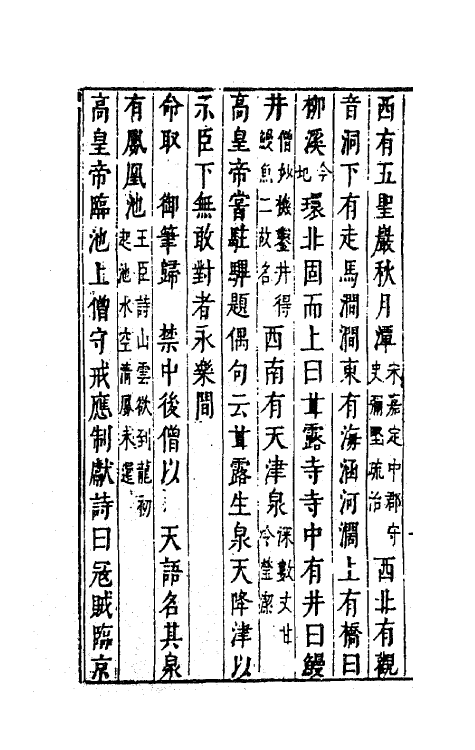 西有五聖巖秋月潭宋嘉定中郡守史彌堅疏治西北有觀
音洞下有走馬澗澗東有海涵河澗上有橋曰
柳溪今地環北固而上曰甘露寺寺中有井曰鰻
井僧妙機鑿井得鰻魚二故名西南有天津泉深數丈甘冷瑩潔
高皇帝嘗駐驆題偶句云甘露生泉天降津以
示臣下無敢對者永樂間
命取　御筆歸　禁中後僧以　天語名其泉
有鳳凰池王臣詩山雲欲到龍初起池水空清鳳未還
高皇帝臨池上僧守戒應制獻詩曰冦賊臨京